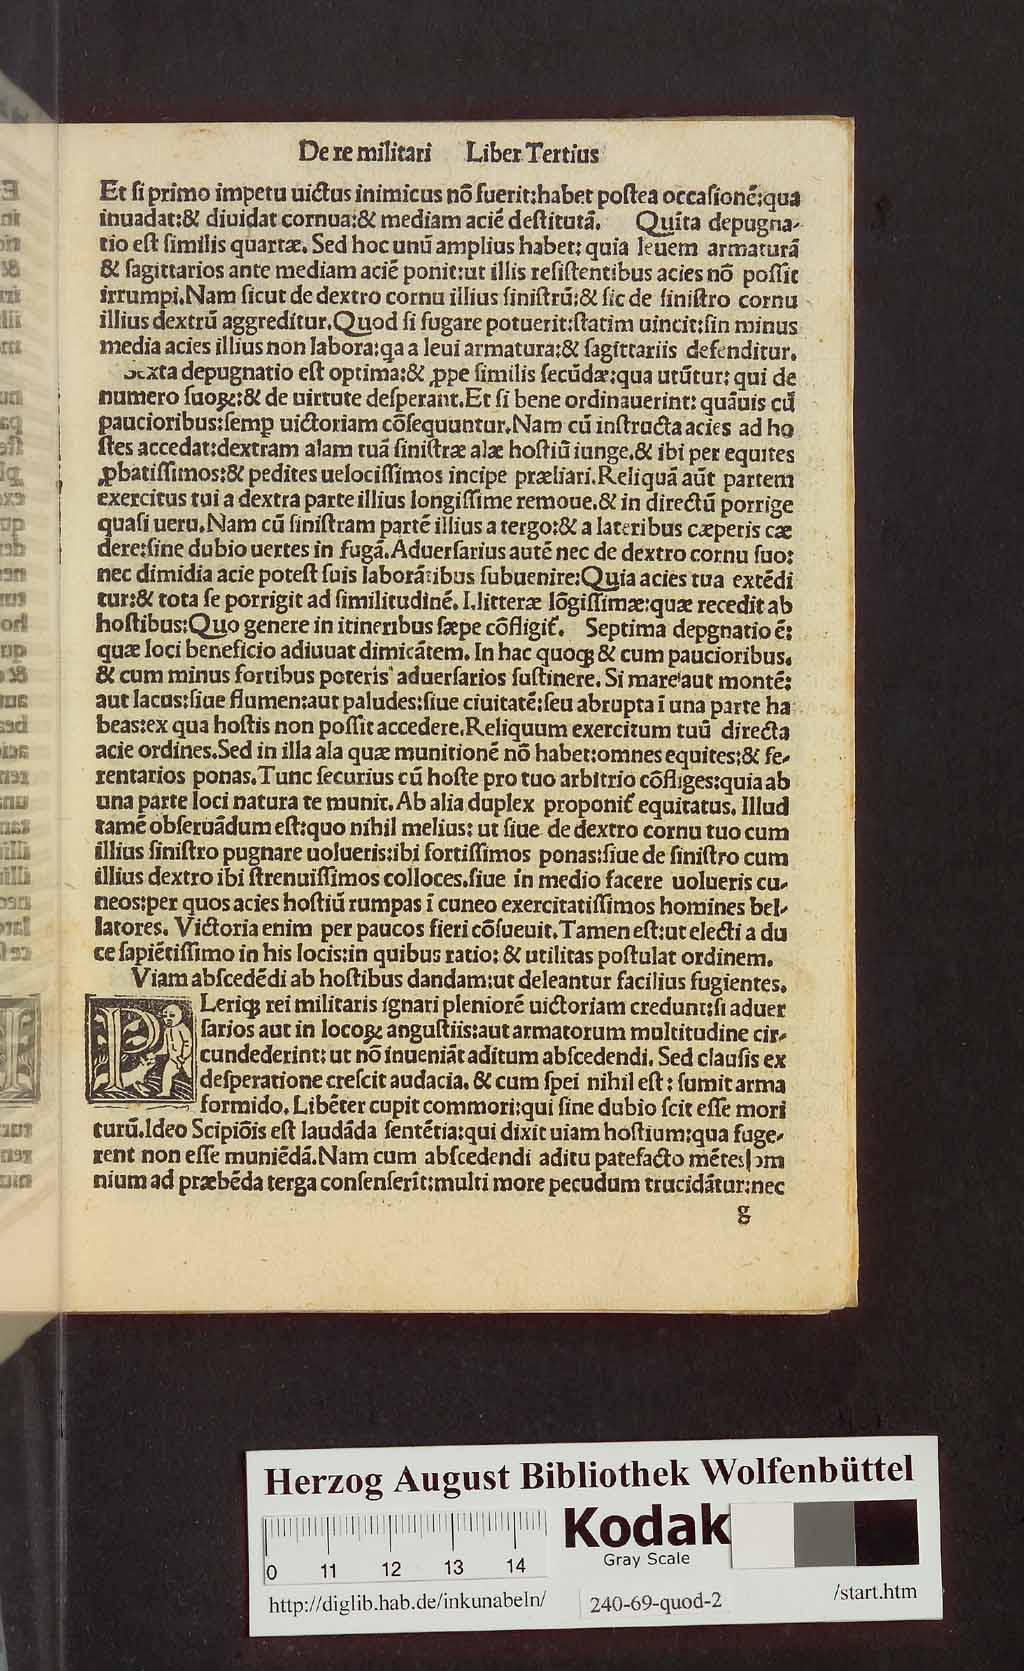 De re militari Liber Tertius
Et ſi primo impetu uictus inimicus nõ fuerit:habet poſtea occaſionẽ;qua
inuadat:& diuidat cornua:& mediam aciẽ deſtitutã. Quĩta depugna-
tio eſt ſimilis quartæ. Sed hoc unũ amplius habet: quia leuem armaturã
& ſagittarios ante mediam aciẽ ponit:ut illis reſiſtentibus acies nõ poſſit
irrumpi.Nam ſicut de dextro cornu illius ſiniſtrũ:& ſic de ſiniſtro cornu
illius dextrũ aggreditur.Quod ſi fugare potuerit:ſtatim uincit:ſin minus
media acies illius non labora:qa a leui armatura:& ſagittariis defenditur.
Sexta depugnatio eſt optima:& ꝓpe ſimilis ſecũdæ:qua utũtur: qui de
numero ſuoꝝ:& de uirtute deſperant.Et ſi bene ordinauerint: quãuis cũ
paucioribus:ſemꝑ uictoriam cõſequuntur.Nam cũ inſtructa acies ad ho
ſtes accedat:dextram alam tuã ſiniſtræ alæ hoſtiũ iunge.& ibi per equites
ꝓbatiſſimos:& pedites uelociſſimos incipe præliari.Reliquã aũt partem
exercitus tui a dextra parte illius longiſſime remoue.& in directũ porrige
quaſi ueru.Nam cũ ſiniſtram partẽ illius a tergo:& a lateribus cæperis cæ
dere:ſine dubio uertes in fugã.Aduerſarius autẽ nec de dextro cornu ſuo:
nec dimidia acie poteſt ſuis laborãtibus ſubuenire:Quia acies tua extẽdi
tur:& tota ſe porrigit ad ſimilitudinẽ. I.litteræ lõgiſſimæ:quæ recedit ab
hoſtibus:Quo genere in itineribus ſæpe cõfligit̃. Septima depgnatio ẽ:
quæ loci beneficio adiuuat dimicãtem. In hac quoqꝫ & cum paucioribus.
& cum minus fortibus poteris aduerſarios ſuſtinere. Si mare aut montẽ:
aut lacus:ſiue flumen:aut paludes:ſiue ciuitatẽ:ſeu abrupta ĩ una parte ha
beas:ex qua hoſtis non poſſit accedere.Reliquum exercitum tuũ directa
acie ordines.Sed in illa ala quæ munitionẽ nõ habet:omnes equites:& fe-
rentarios ponas.Tunc ſecurius cũ hoſte pro tuo arbitrio cõfliges:quia ab
una parte loci natura te munit. Ab alia duplex proponit̃ equitatus. Illud
tamẽ obſeruãdum eſt:quo nihil melius: ut ſiue de dextro cornu tuo cum
illius ſiniſtro pugnare uolueris:ibi fortiſſimos ponas:ſiue de ſiniſtro cum
illius dextro ibi ſtrenuiſſimos colloces.ſiue in medio facere uolueris cu-
neos:per quos acies hoſtiũ rumpas ĩ cuneo exercitatiſſimos homines bel-
latores. Victoria enim per paucos fieri cõſueuit.Tamen eſt:ut electi a du
ce ſapiẽtiſſimo in his locis:in quibus ratio: & utilitas poſtulat ordinem.
Viam abſcedẽdi ab hoſtibus dandam:ut deleantur facilius fugientes.
PLeriqꝫ rei militaris ignari pleniorẽ uictoriam credunt:ſi aduer
ſarios aut in locoꝝ anguſtiis:aut armatorum multitudine cir-
cundederint: ut nõ inueniãt aditum abſcedendi. Sed clauſis ex
deſperatione creſcit audacia. & cum ſpei nihil eſt: ſumit arma
formido. Libẽter cupit commori:qui ſine dubio ſcit eſſe mori
turũ.Ideo Scipiõis eſt laudãda ſentẽtia:qui dixit uiam hoſtium:qua fuge-
rent non eſſe muniẽdã.Nam cum abſcedendi aditu patefacto mẽtes om
nium ad præbẽda terga conſenſerĩt:multi more pecudum trucidãtur:nec
g
Herzog August Bibliothek Wolfenbüttel
Kodak
Gray Scale
0 11 12 13 14
http://diglib.hab.de/inkunabeln/ 240-69-quod-2 /start.htm